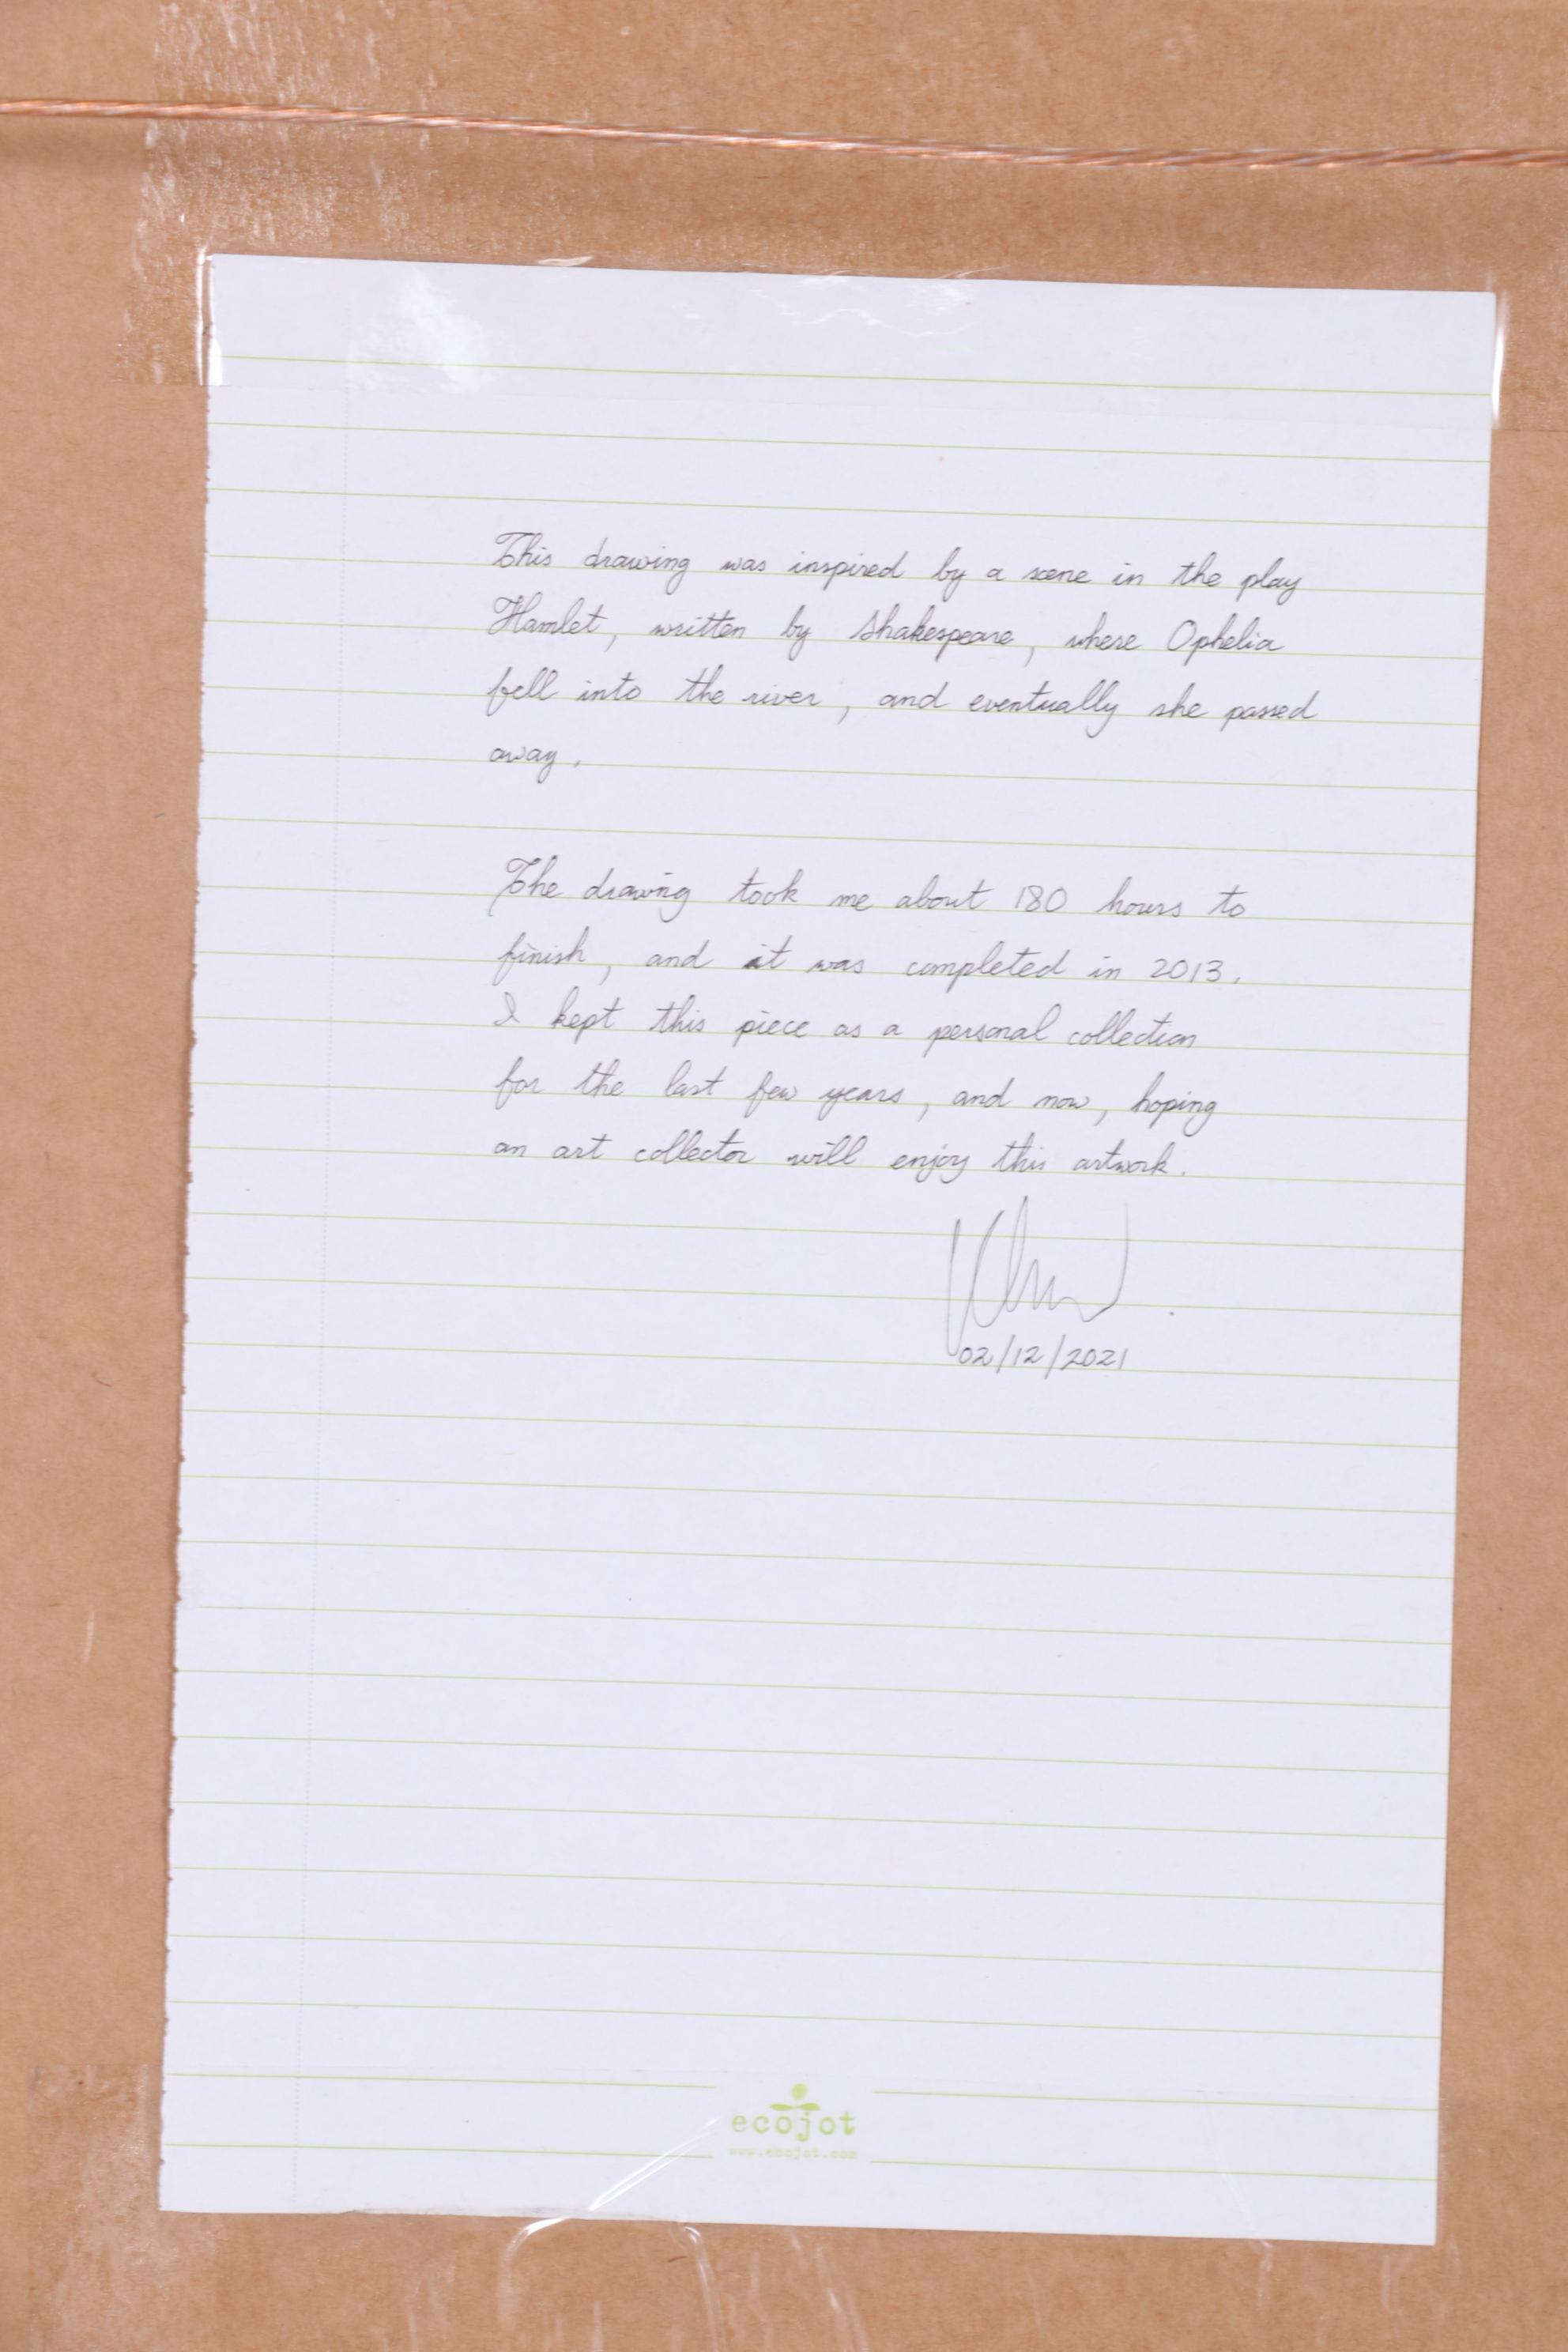 This drawing was inspired by a scene in the play
Hamlet, written by Shakespeare, where Ophelia
fell into the river, and eventually she passed
away.
The drawing took me about 180 hours to
finish, and it was completed in 2013.
I kept this piece as a personal collection
for the last few years, and now, hoping
an art collector will enjoy this artwork.
02/12/2021
ecojot
www.ecojot.com